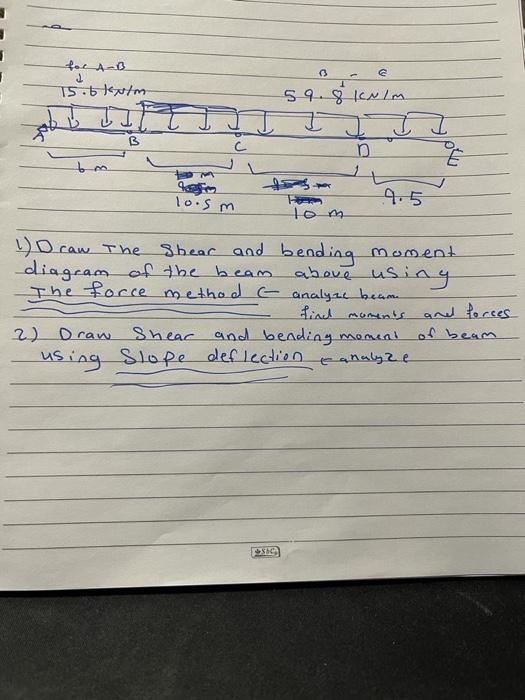 for A-B
B - E
15.6 kN/m
59.8 kN/m
A
B
C
D
E
6 m
10.5 m
10 m
9.5
1) Draw The Shear and bending moment
diagram of the beam above using
The force method ← analyze beam
find moments and forces
2) Draw Shear and bending moment of beam
using Slope deflection ← analyze